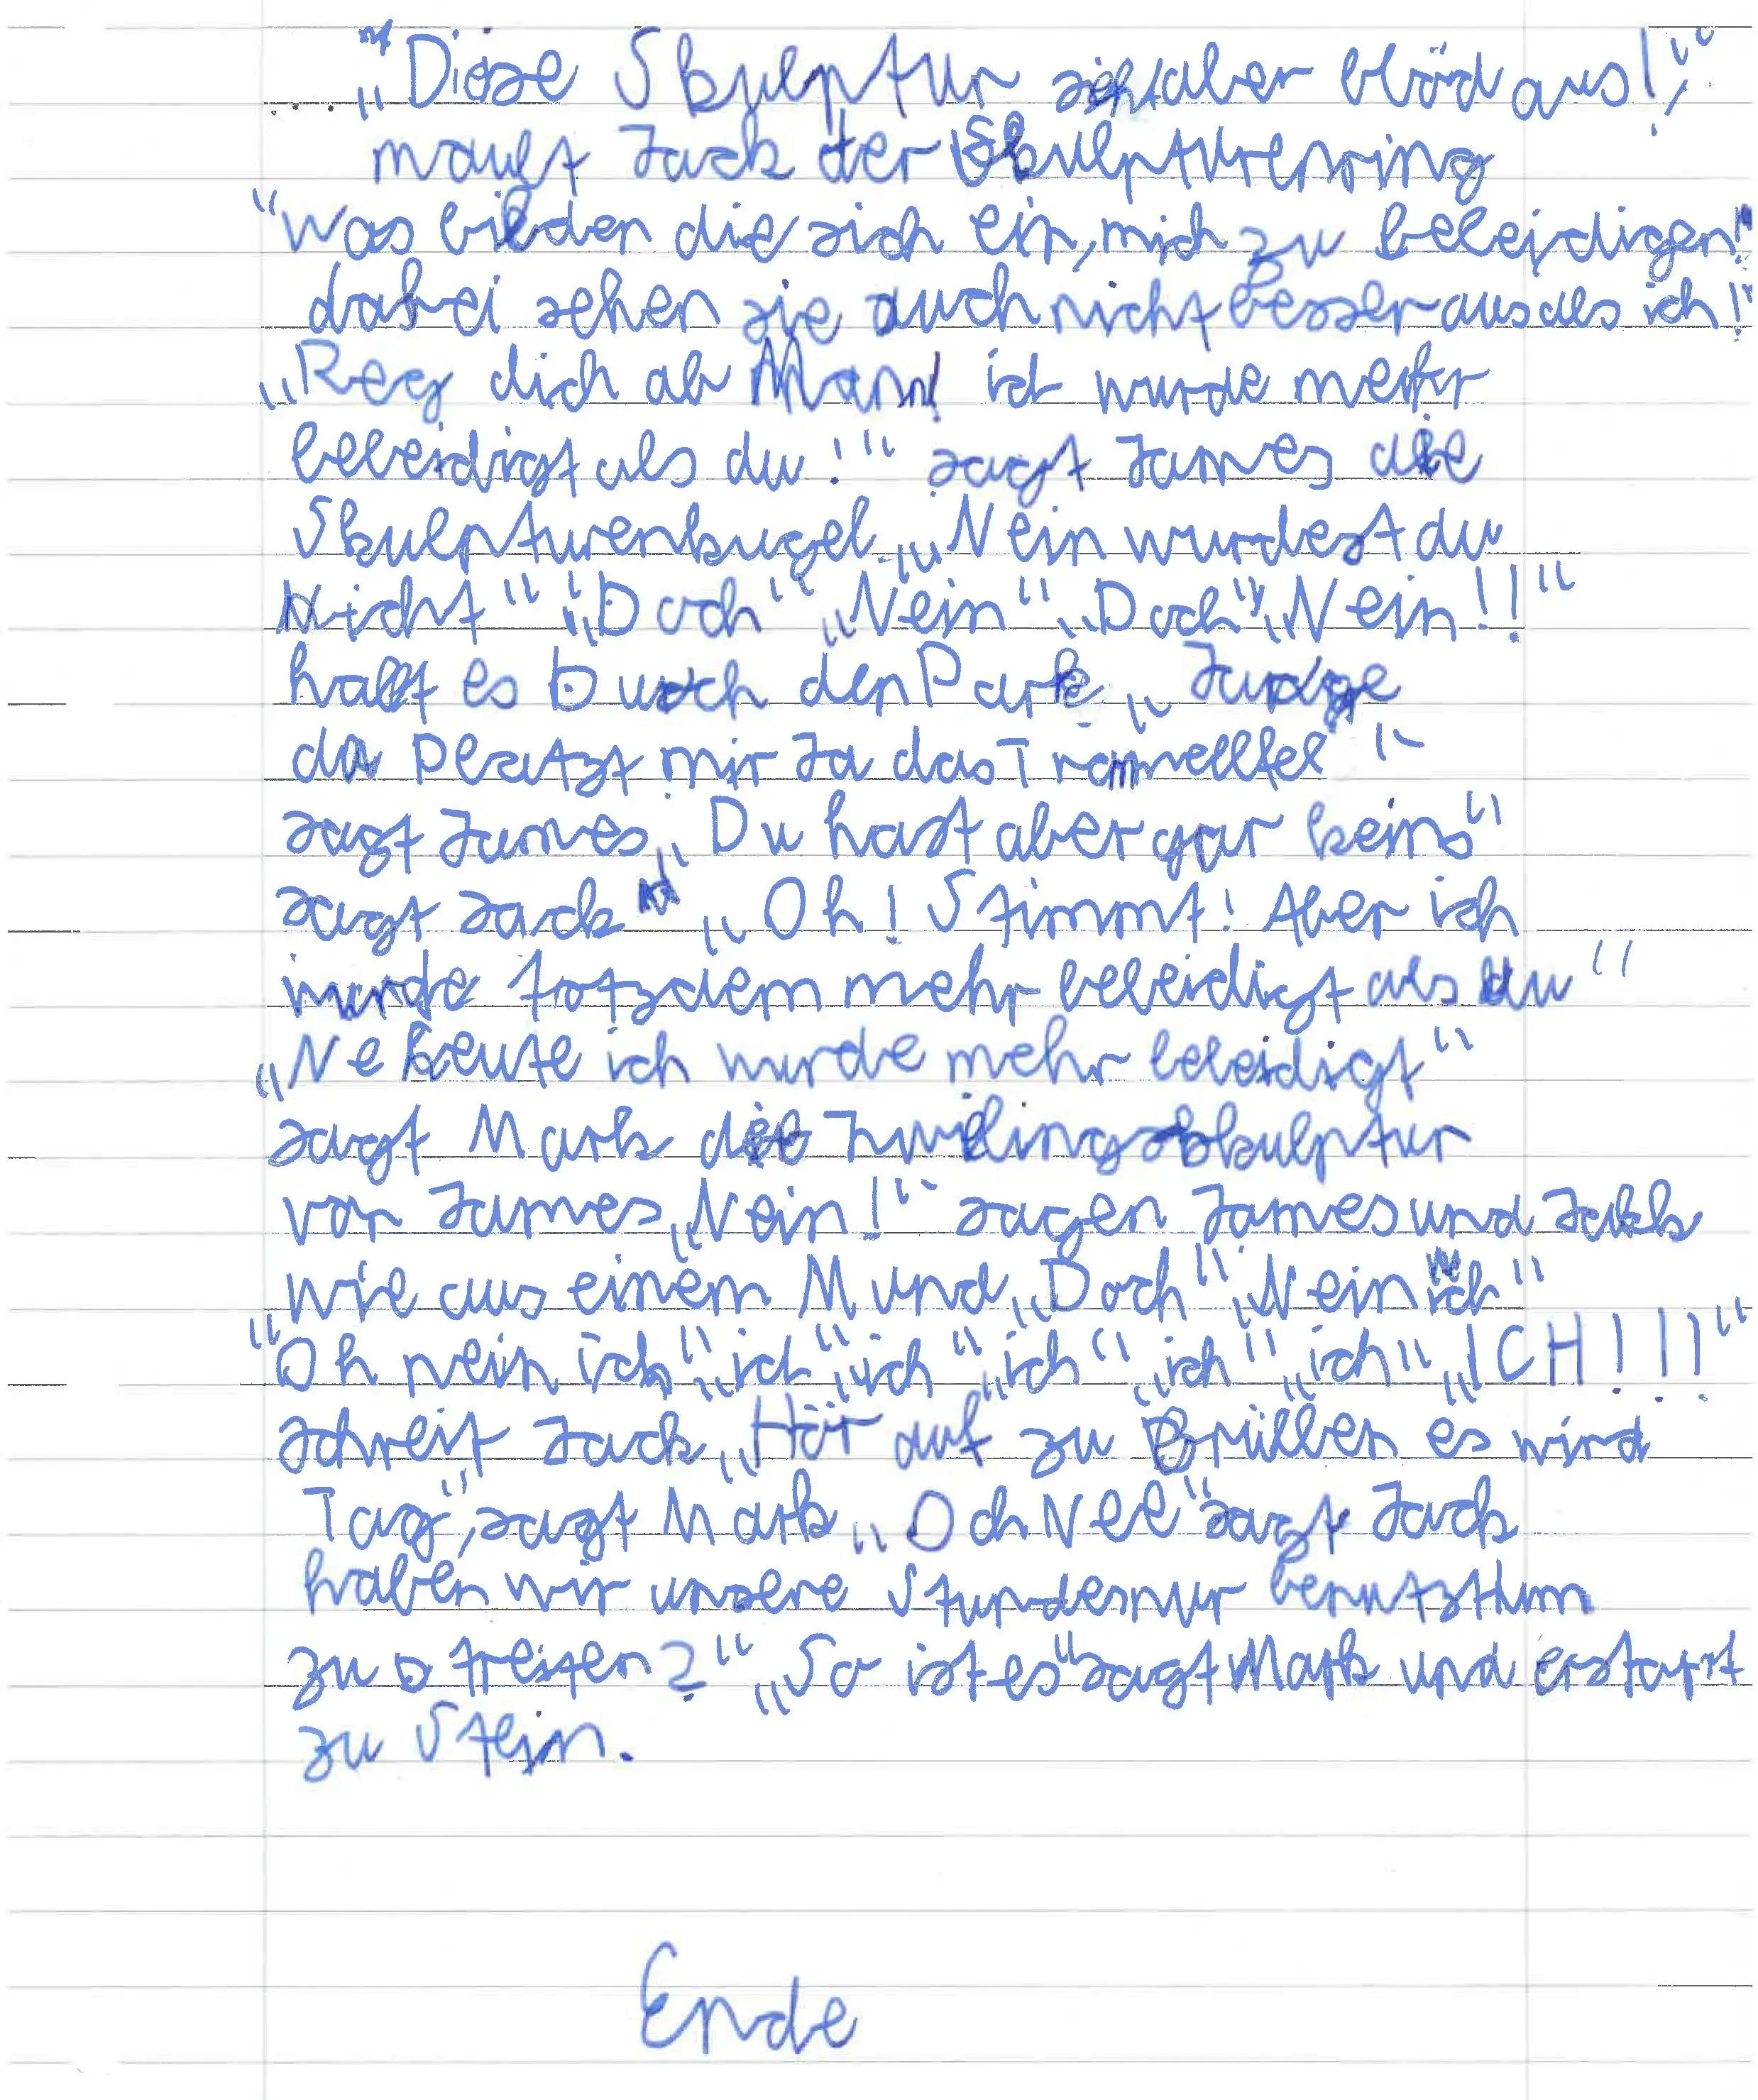 „Diese Skulptur sieht aber blöd aus!",
mault Jack der Skulpturenring
"Was bilden die sich ein, mich zu beleidigen!
dabei sehen sie auch nicht besser aus als ich!"
„Reg dich ab Mann! ich wurde mehr
beleidigt als du!" sagt James die
Skulpturenkugel. „Nein wurdest du
Nicht" „Doch" „Nein" „Doch" „Nein!!"
hallt es Durch den Park „Junge
da Platzt mir Ja das Trommelfel"
sagt James „Du hast aber gar keins"
sagt Jack „Oh! Stimmt! Aber ich
wurde trotzdem mehr beleidigt als du"
„Ne heute ich wurde mehr beleidigt"
sagt Mark die Zwilingsskulptur
von James „Nein!" sagen James und Jack
wie aus einem Mund „Doch" „Nein ich"
"Oh nein ich" „ich" „ich" „ich" „ich" „ich" „ICH!!!"
schreit Jack „Hör auf zu Brüllen es wird
Tag", sagt Mark „Och Nee" sagt Jack
haben wir unsere Stunde nur benutzt um
zu streiten?" „So ist es" sagt Mark und erstarrt
zu Stein.
Ende